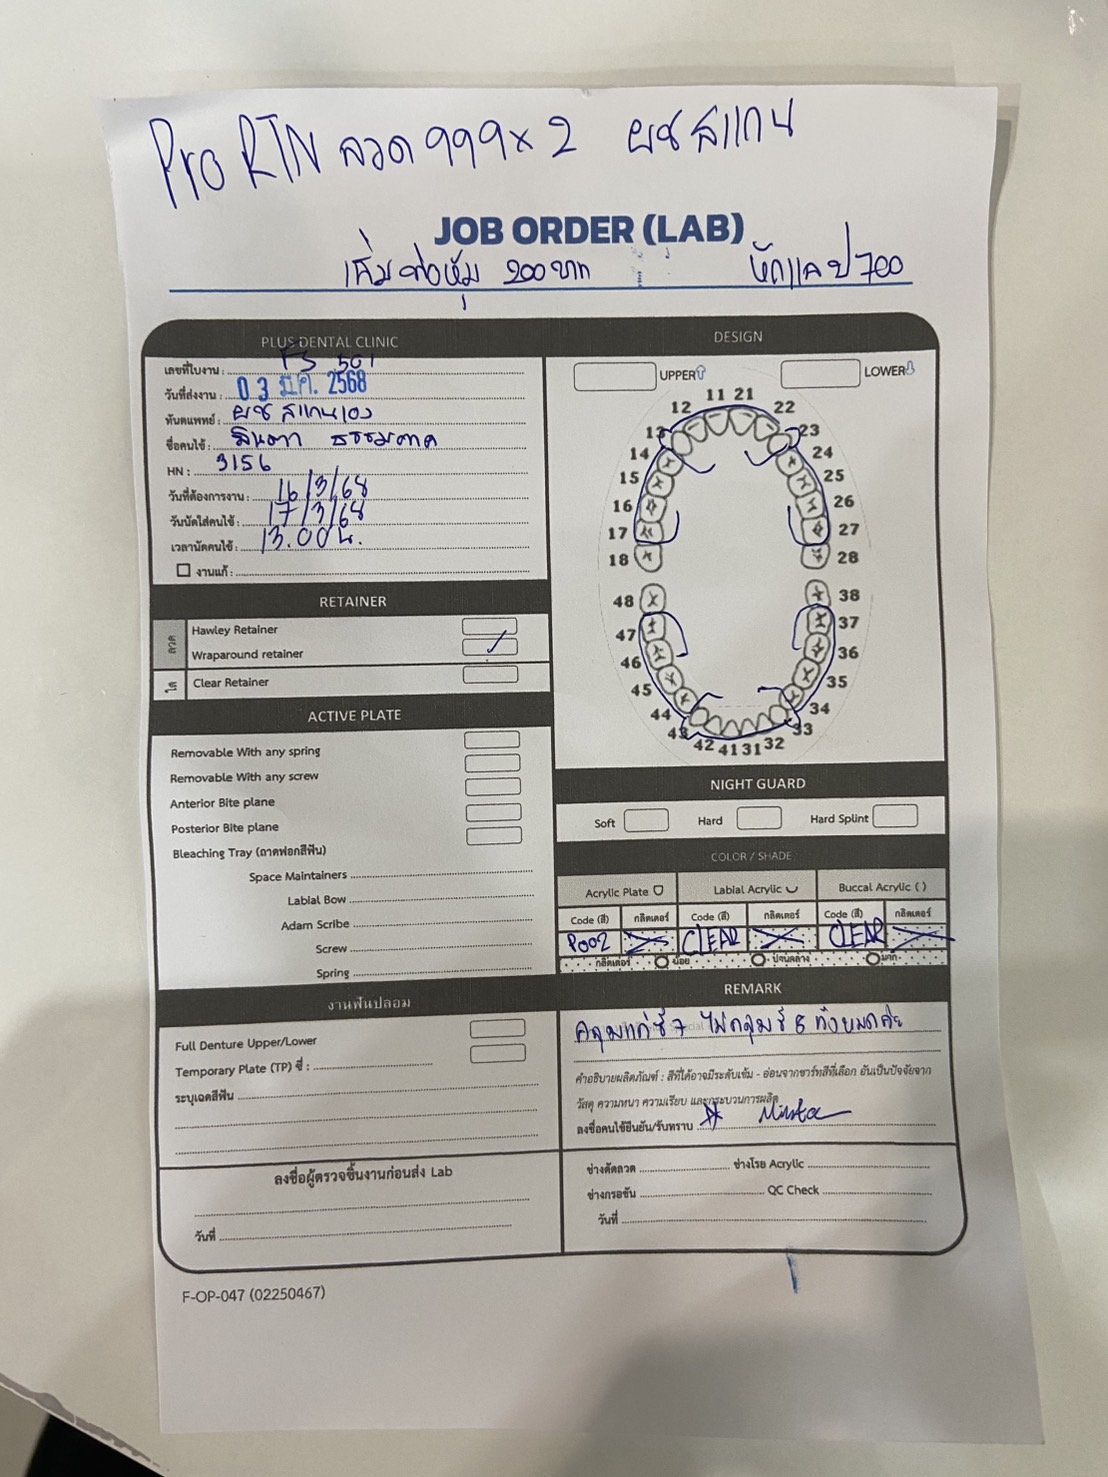 Pro RTN ลวด 999 x 2 ผช สแกน
JOB ORDER (LAB)
เพิ่มท่อหุ้ม 200 บาท หักแลป 700
PLUS DENTAL CLINIC
เลขที่ใบงาน : FS 501
วันที่ส่งงาน : 03 มี.ค. 2568
ทันตแพทย์ : ผช สแกนเอง
ชื่อคนไข้ :
HN : 3156
วันที่ต้องการงาน : 16/3/68
วันนัดใส่คนไข้ : 17/3/68
เวลานัดคนไข้ : 13.00 น.
งานแก้ :
RETAINER
ลวด
Hawley Retainer
Wraparound retainer
ใส
Clear Retainer
ACTIVE PLATE
Removable With any spring
Removable With any screw
Anterior Bite plane
Posterior Bite plane
Bleaching Tray (ถาดฟอกสีฟัน)
Space Maintainers
Labial Bow
Adam Scribe
Screw
Spring
งานฟันปลอม
Full Denture Upper/Lower
Temporary Plate (TP) ซี่ :
ระบุเฉดสีฟัน
ลงชื่อผู้ตรวจชิ้นงานก่อนส่ง Lab
วันที่
DESIGN
UPPER LOWER
11 21
12 22
13 23
14 24
15 25
16 26
17 27
18 28
48 38
47 37
46 36
45 35
44 34
43 33
42 41 31 32
NIGHT GUARD
Soft Hard Hard Splint
COLOR / SHADE
Acrylic Plate Labial Acrylic Buccal Acrylic ( )
Code (สี) กลิตเตอร์ Code (สี) กลิตเตอร์ Code (สี) กลิตเตอร์
P002 CLEAR CLEAR
กลิตเตอร์ น้อย ปานกลาง มาก
REMARK
คลุมแค่ซี่ 7 ไม่คลุมซี่ 8 ทั้งหมดค่ะ
คำอธิบายผลิตภัณฑ์ : สีที่ได้อาจมีระดับเข้ม - อ่อนจากชาร์ทสีที่เลือก อันเป็นปัจจัยจาก
วัสดุ ความหนา ความเรียบ และกระบวนการผลิต
ลงชื่อคนไข้ยืนยัน/รับทราบ Minta
ช่างดัดลวด ช่างโรย Acrylic
ช่างกรอขัน QC Check
วันที่
F-OP-047 (02250467)